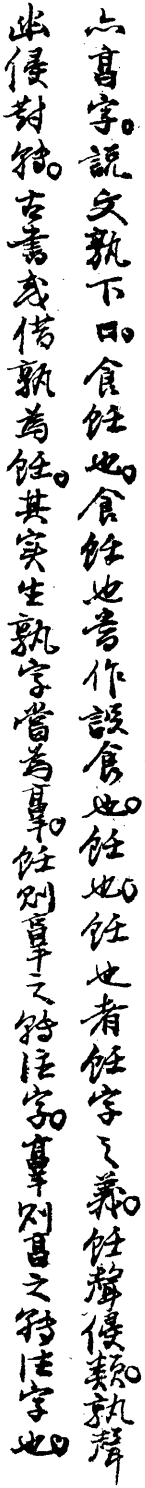 亦亯字。說文孰下曰。食飪也。食飪也當作設食也。飪也。飪也者飪字之義。飪聲侵類。孰聲
幽侵對轉。古書或借孰為飪。其实生孰字當為𦎫。飪則𦎫之轉注字。𦎫則亯之轉注字也。